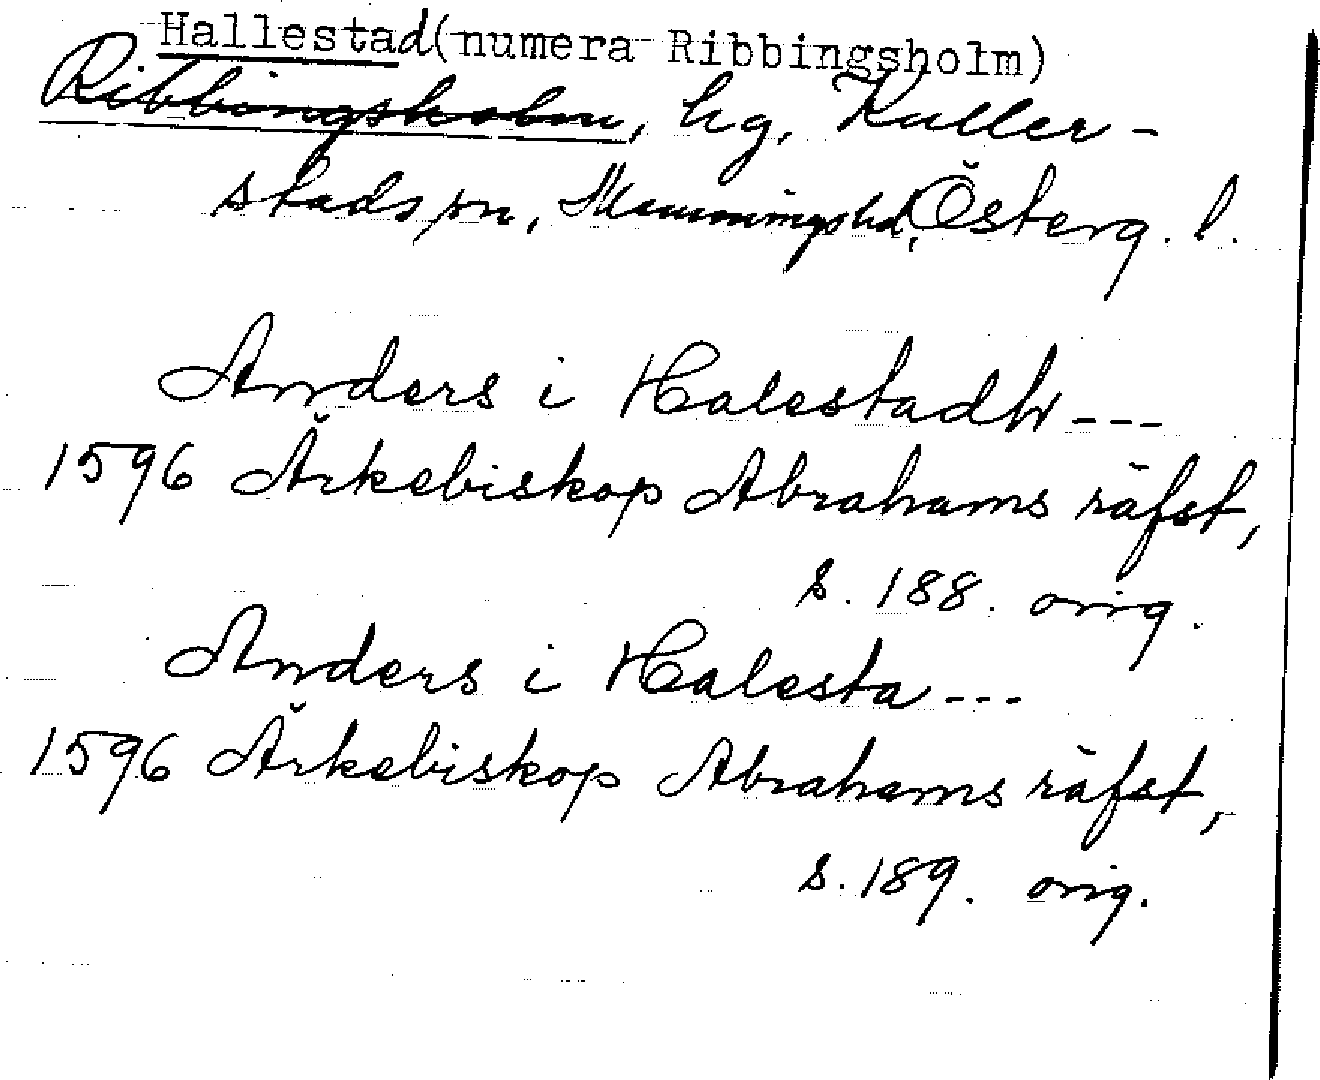 Hallestad (numera Ribbingsholm)
Ribbingsholm, hg, Kuller-
stads sn, Memmings hd, Österg. l.
Anders i Halestadh ---
1596 Ärkebiskop Abrahams räfst,
s. 188. orig.
Anders i Halesta ---
1596 Ärkebiskop Abrahams räfst,
s. 189. orig.